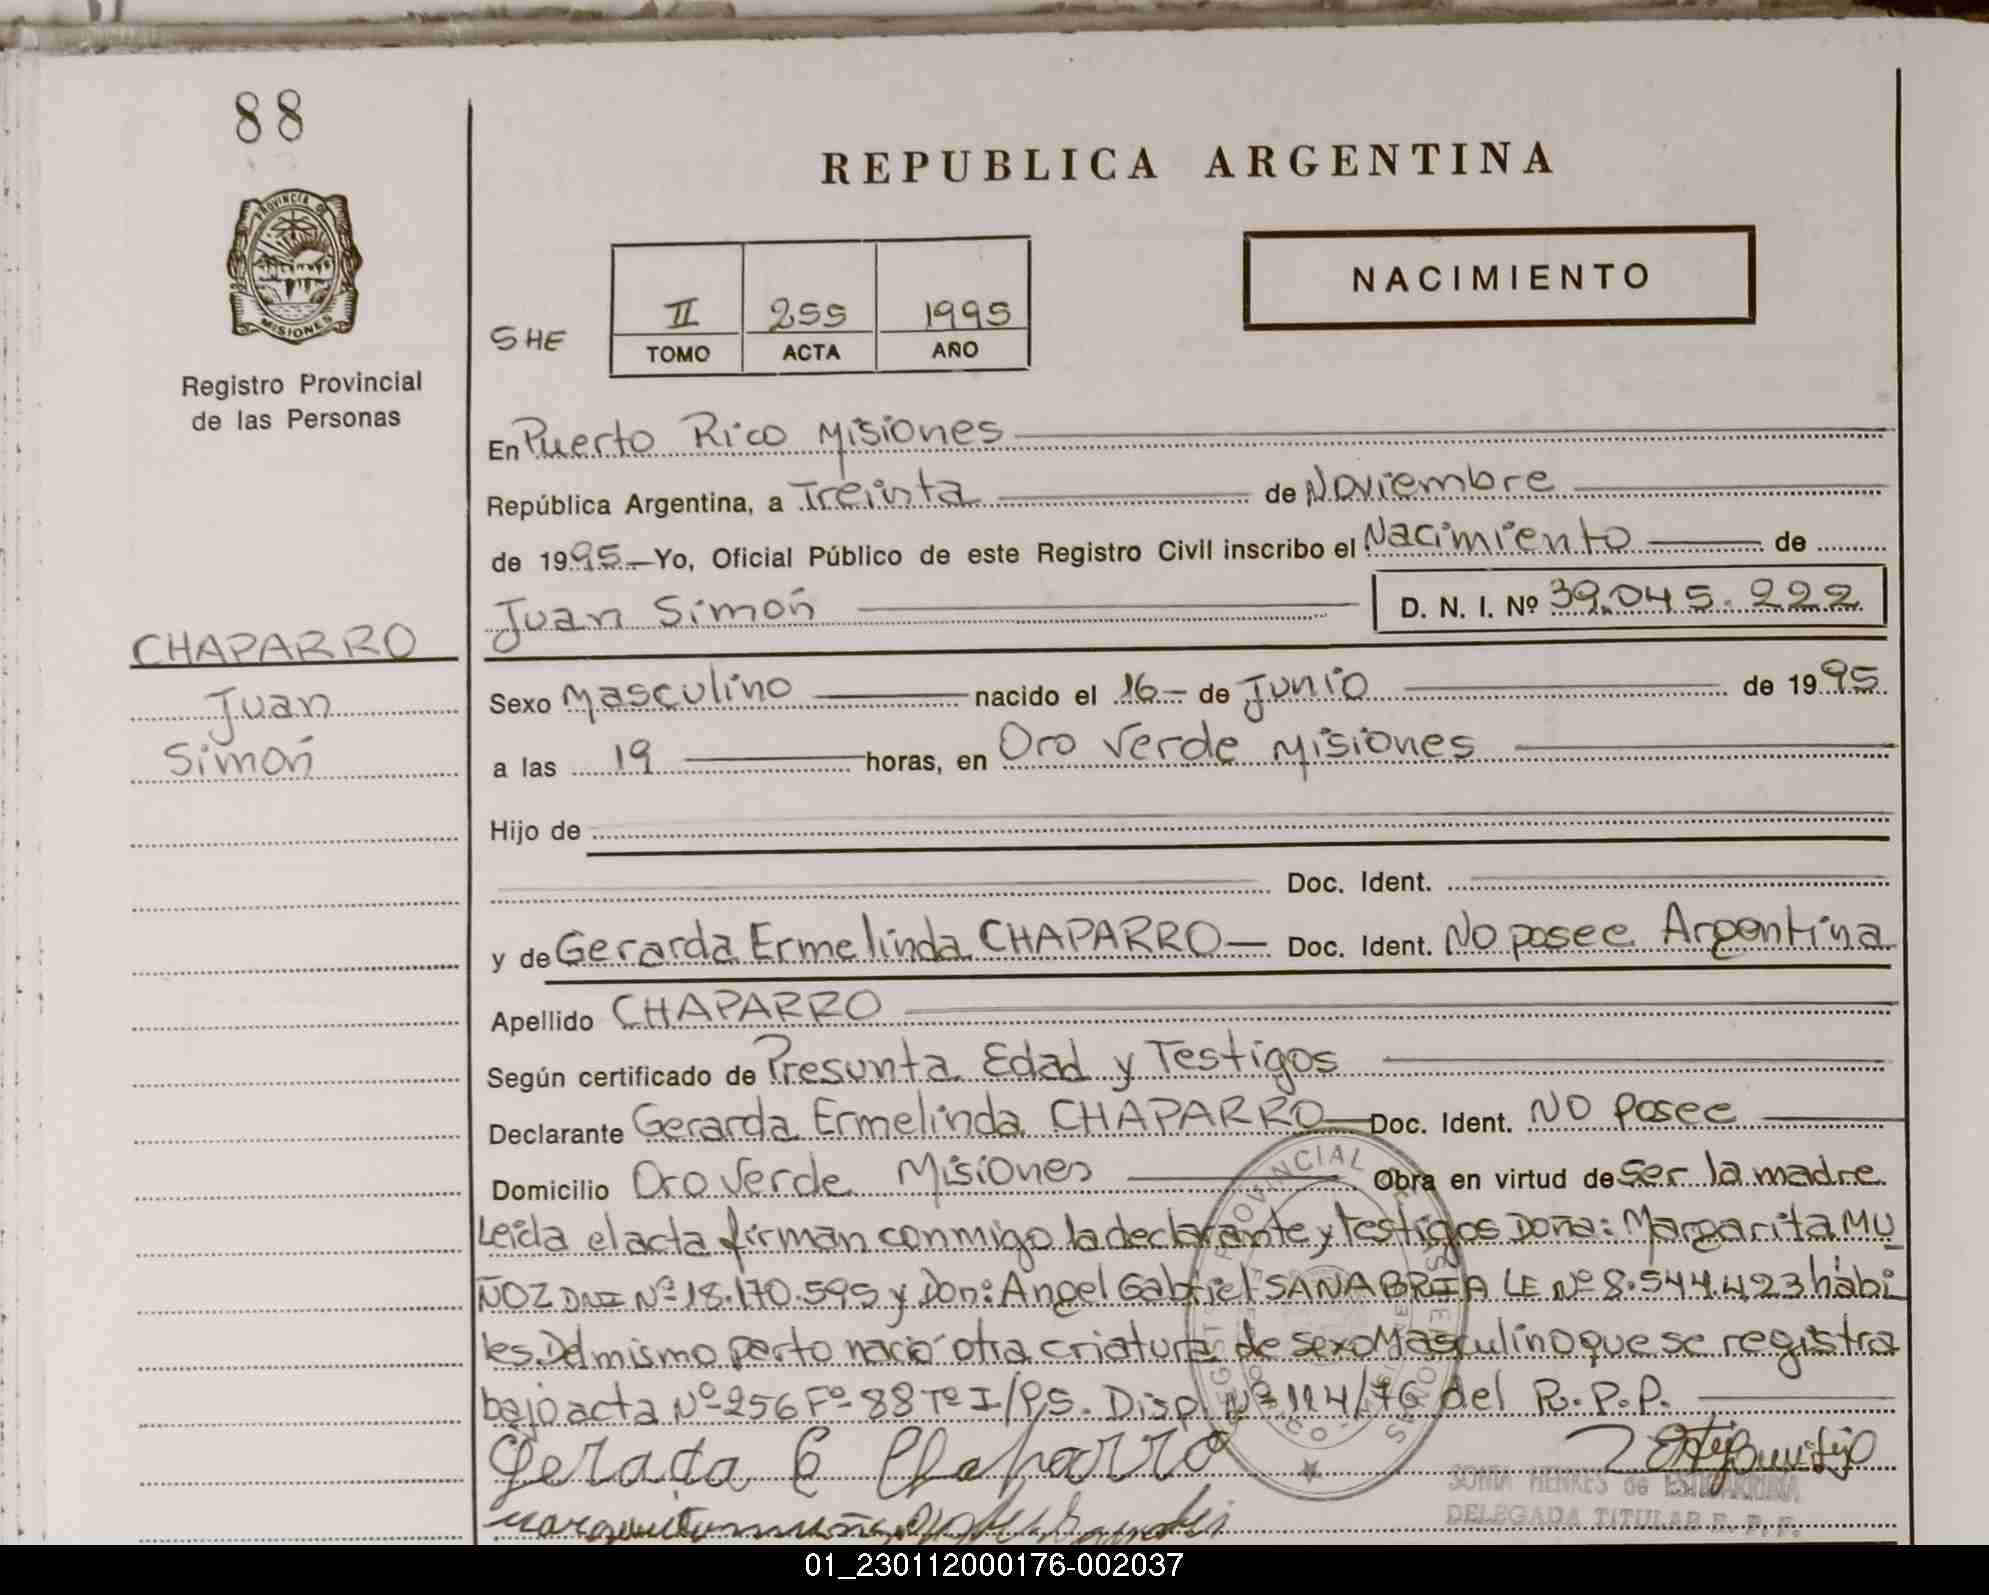 88
REPUBLICA ARGENTINA
PROVINCIA DE
MISIONES
NACIMIENTO
II 255 1995
SHE
TOMO ACTA AÑO
Registro Provincial
de las Personas
En Puerto Rico Misiones
República Argentina, a Treinta de Noviembre
de 1995 - Yo, Oficial Público de este Registro Civil inscribo el Nacimiento de
Juan Simón D. N. I. Nº 39.045.222
CHAPARRO
Juan
Simón
Sexo Masculino nacido el 16 - de Junio de 1995
a las 19 horas, en Oro Verde Misiones
Hijo de
Doc. Ident.
y de Gerarda Ermelinda CHAPARRO — Doc. Ident. No posee Argentina
Apellido CHAPARRO
Según certificado de Presunta Edad y Testigos
Declarante Gerarda Ermelinda CHAPARRO — Doc. Ident. NO Posee
Domicilio Oro Verde Misiones Obra en virtud de Ser la madre
Leída el acta firman conmigo la declarante y testigos Doña: Margarita MU
ÑOZ DNI Nº 18.170.595 y Don: Angel Gabriel SANABRIA LE Nº 8.544.423 hábi
les. Del mismo parto nació otra criatura de sexo Masculino que se registra
bajo acta Nº 256 Fº 88 Tº I/P.S. Disp. Nº 114/76 del R.P.P.
Gerarda E Chaparro
SONIA HENKES de
DELEGADA TITULAR R. P. P.
01_230112000176-002037